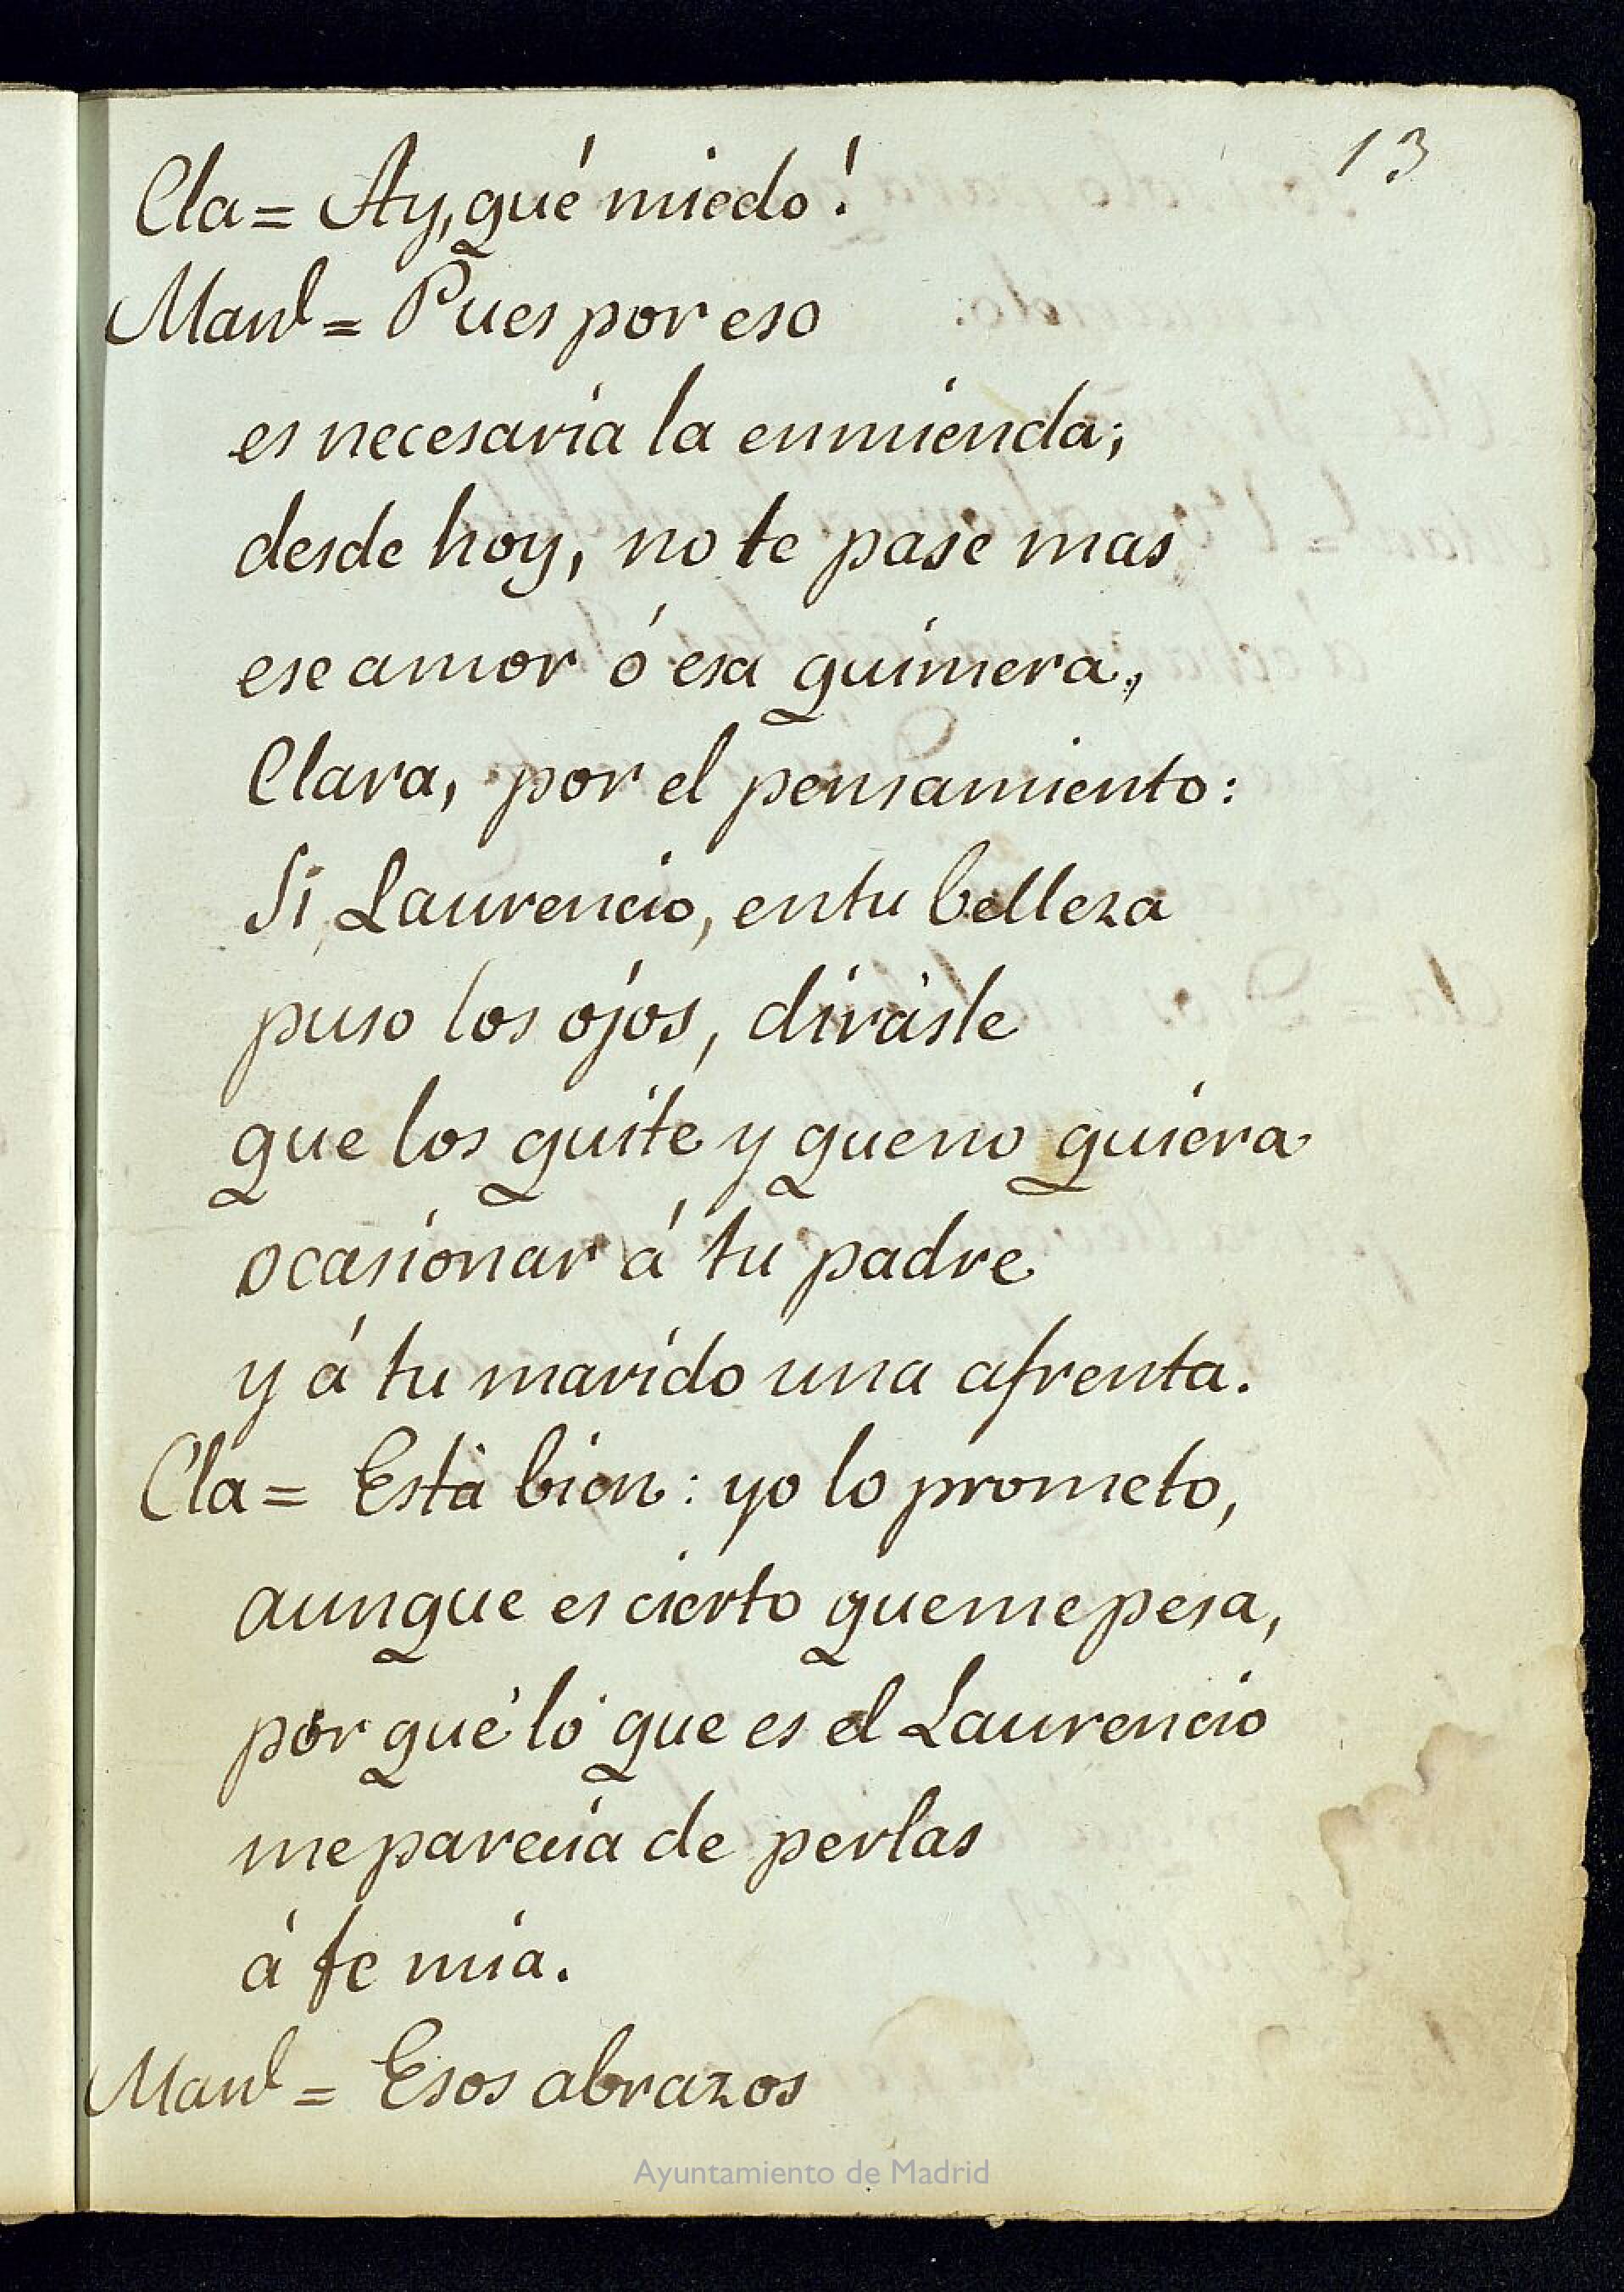 13
Cla = Ay, qué miedo!
Manl = Pues por eso
es necesaria la enmienda;
desde hoy, no te pase mas
ese amor ó esa quimera,
Clara, por el pensamiento:
Si Laurencio, en tu belleza
puso los ojos, dirásle
que los quite y que no quiera
ocasionar á tu padre
y á tu marido una afrenta.
Cla = Está bien: yo lo prometo,
aunque es cierto que me pesa,
por qué lo que es el Laurencio
me parecia de perlas
á fe mia.
Manl = Esos abrazos
Ayuntamiento de Madrid